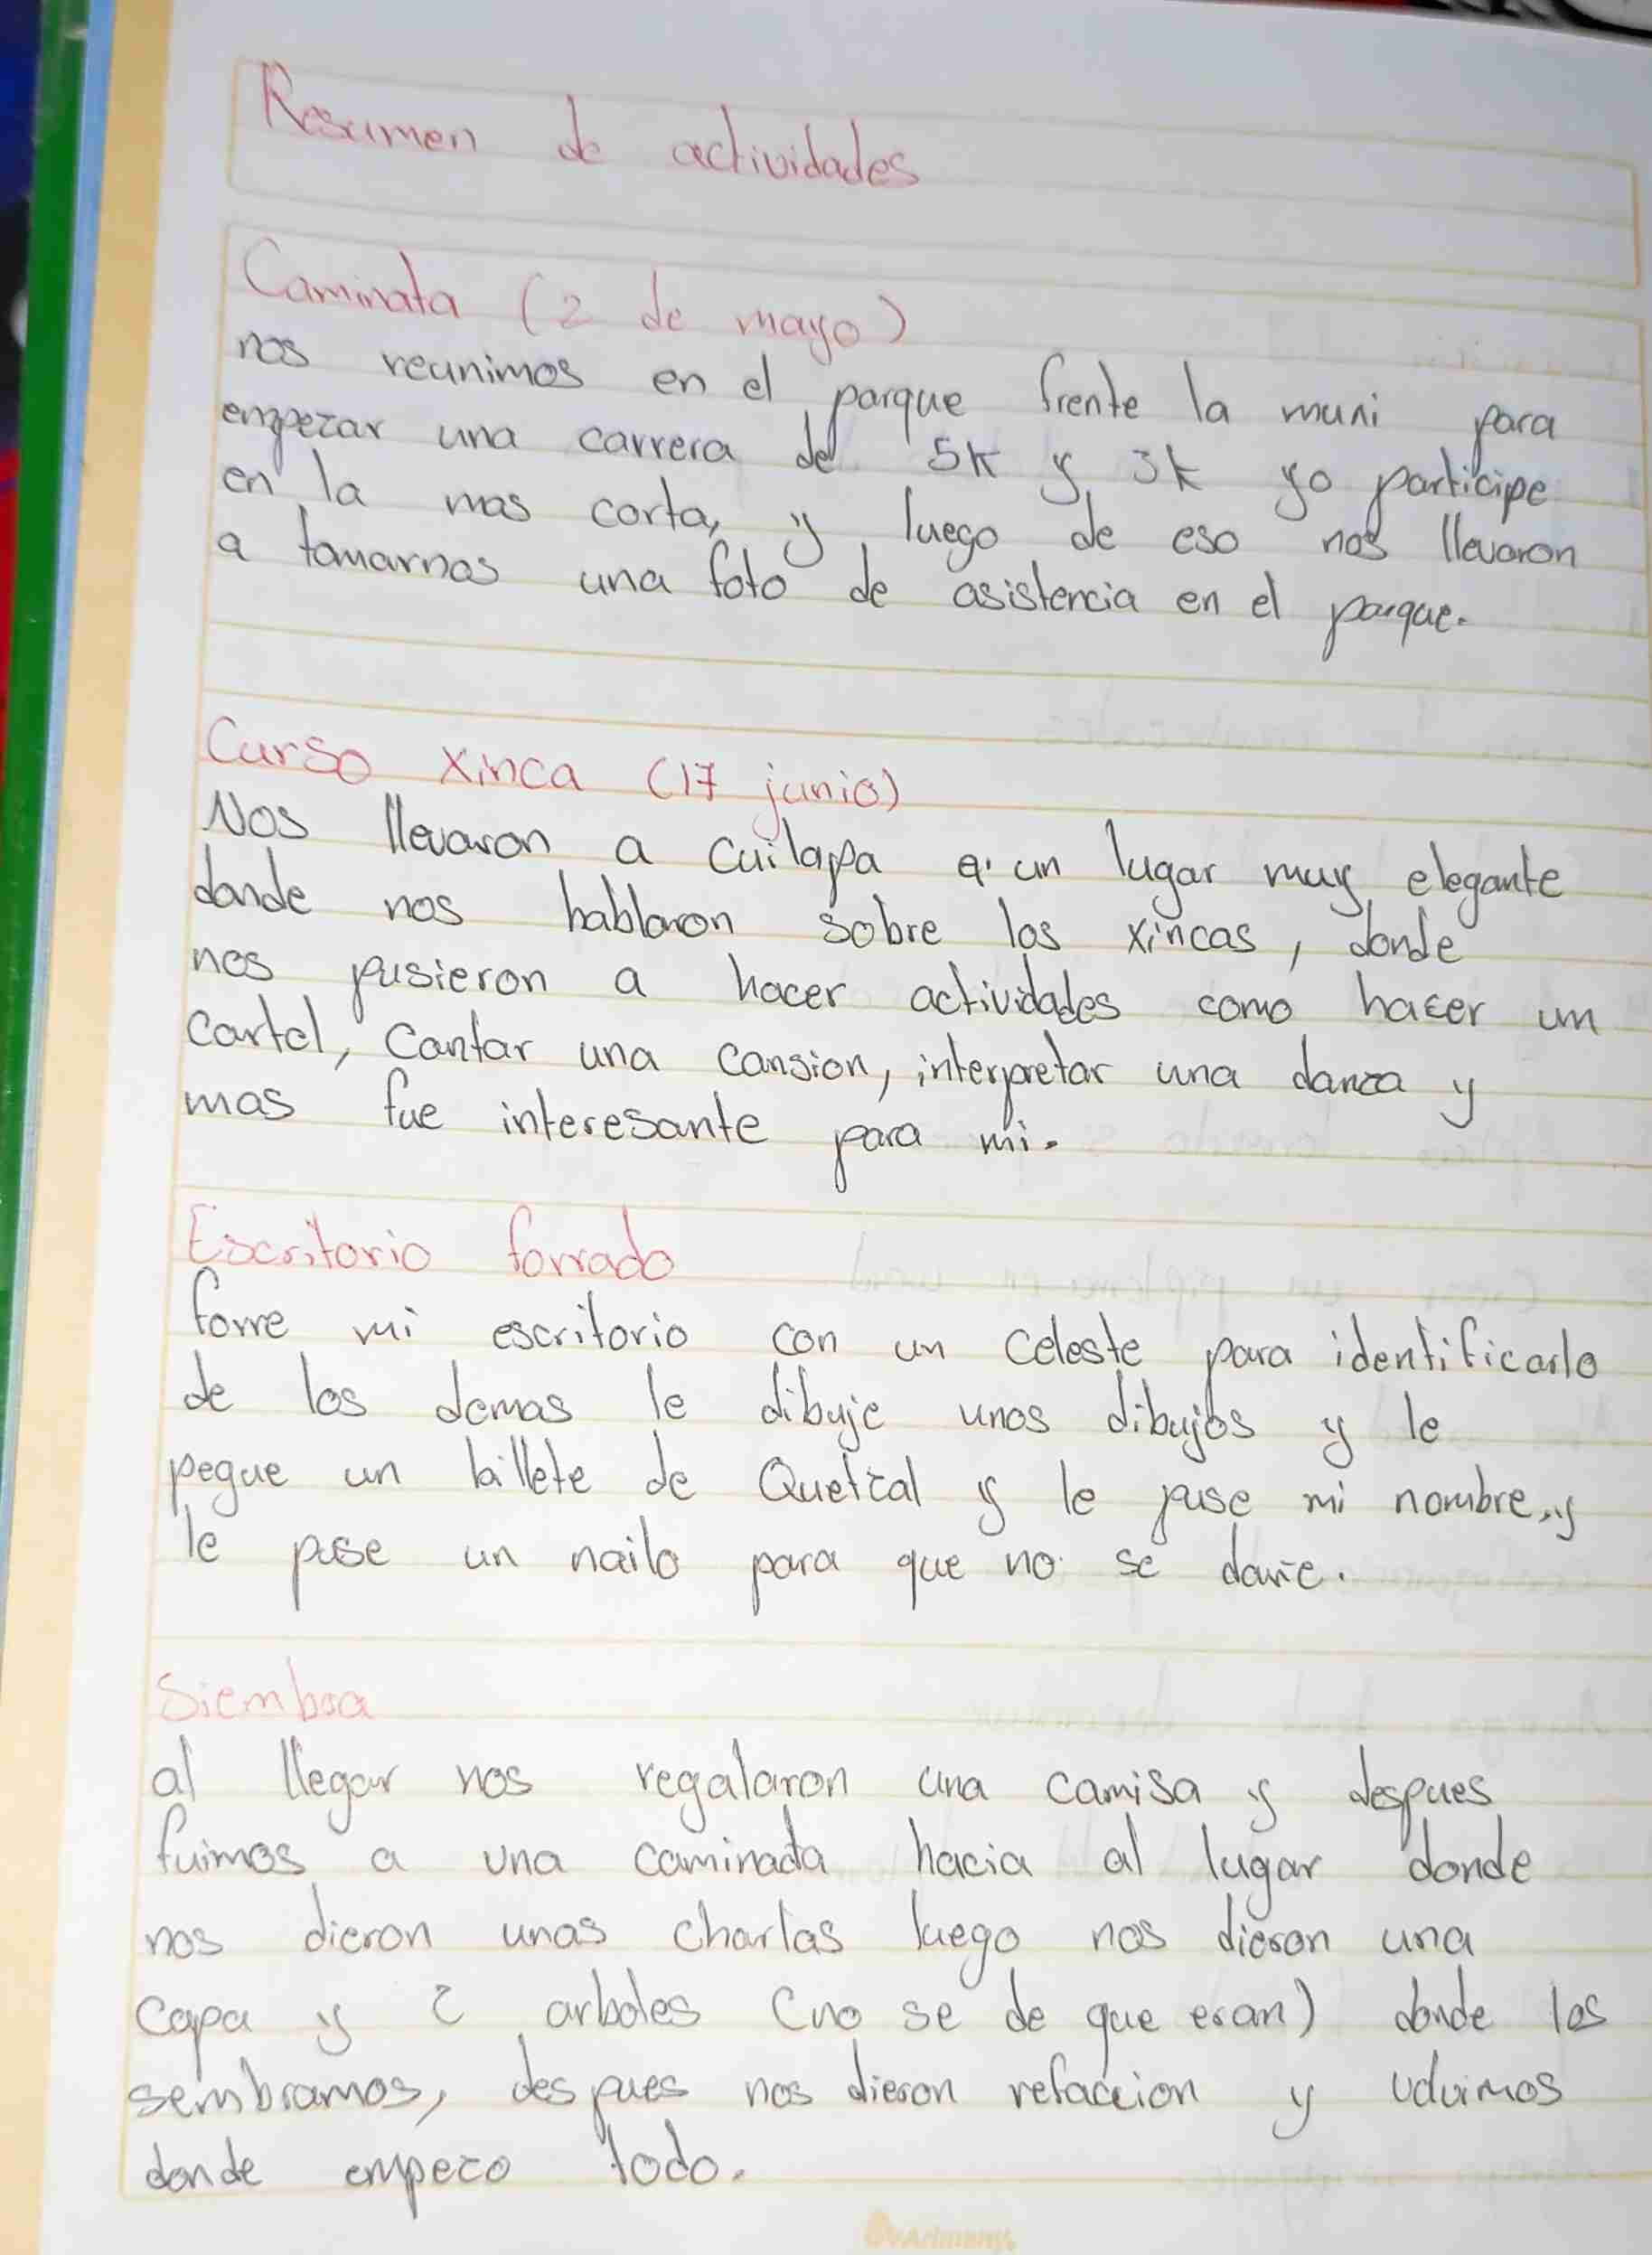 Resumen de actividades
Caminata (2 de mayo)
nos reunimos en el parque frente la muni para
empezar una carrera de 5k y 3k yo participe
en la mas corta, y luego de eso nos llevaron
a tomarnos una foto de asistencia en el parque.
Curso xinca (17 junio)
Nos llevaron a cuilapa a un lugar muy elegante
donde nos hablaron sobre los xincas, donde
nos pusieron a hacer actividades como hacer un
cartel, Cantar una cansion, interpretar una danza y
mas fue interesante para mi.
Escritorio forrado
forre mi escritorio con un celeste para identificarlo
de los demas le dibuje unos dibujos y le
pegue un billete de Quetzal y le puse mi nombre, y
le puse un nailo para que no se dañe.
Siembra
al llegar nos regalaron una camisa y despues
fuimos a una caminada hacia al lugar donde
nos dieron unas charlas luego nos dieron una
capa y 2 arboles (no se de que eran) donde los
sembramos, despues nos dieron refaccion y volvimos
donde empezo todo.